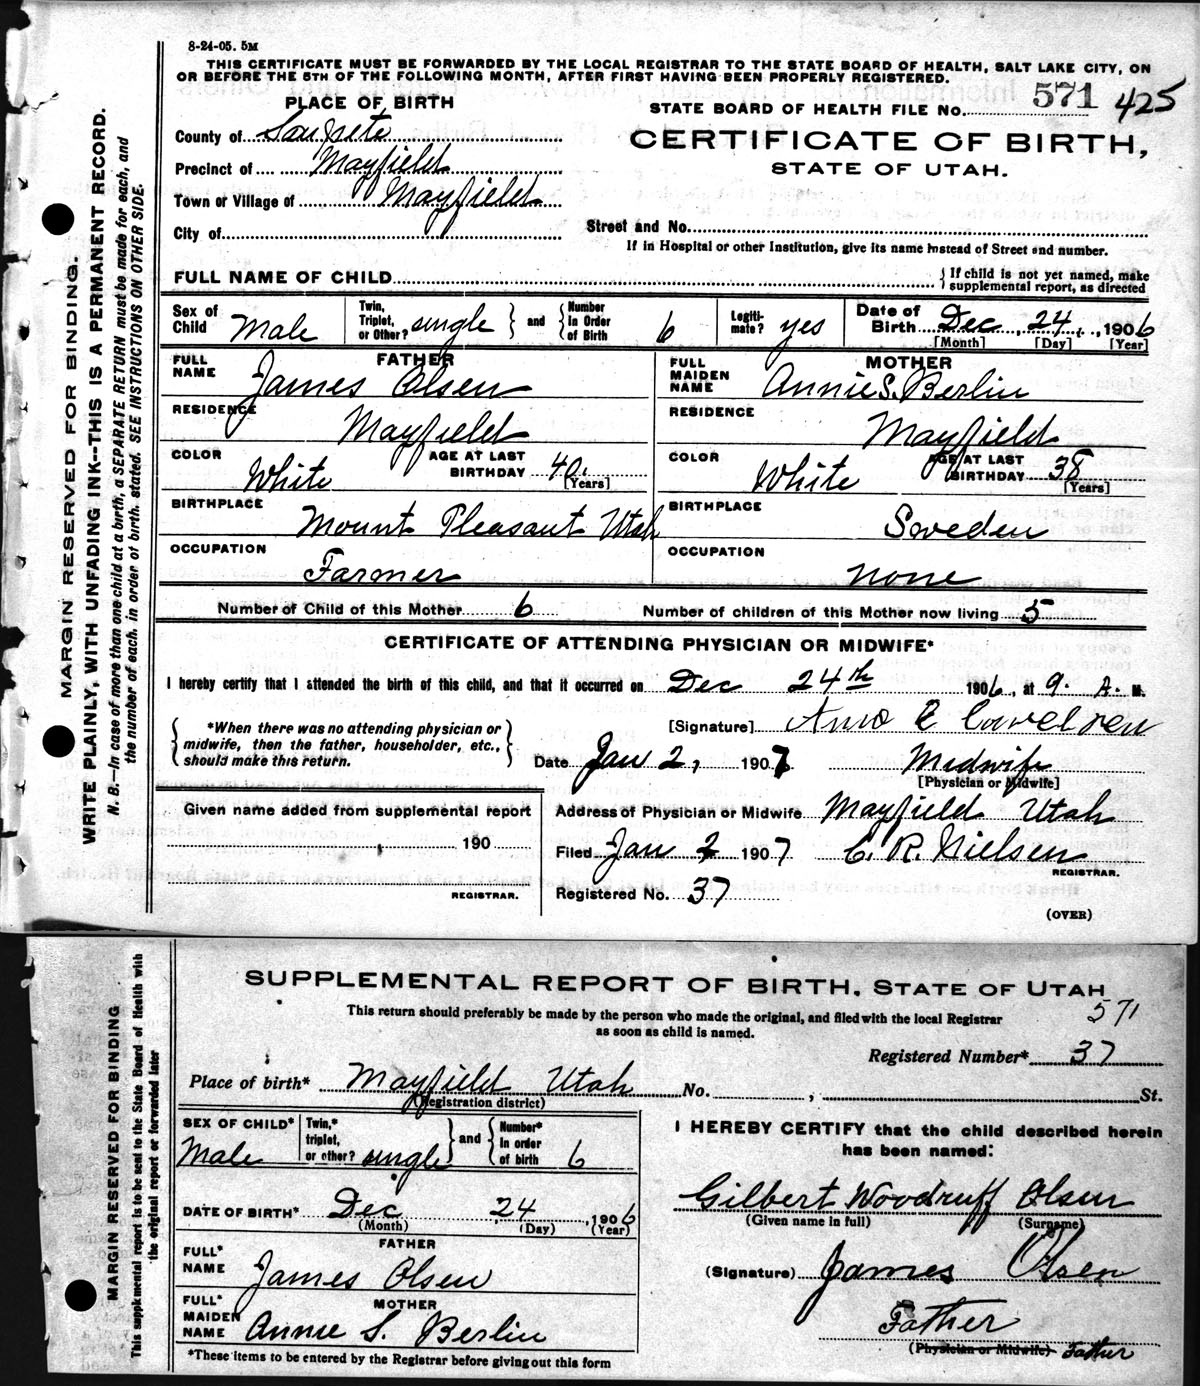 8-24-05. 5M
THIS CERTIFICATE MUST BE FORWARDED BY THE LOCAL REGISTRAR TO THE STATE BOARD OF HEALTH, SALT LAKE CITY, ON
OR BEFORE THE 5TH OF THE FOLLOWING MONTH, AFTER FIRST HAVING BEEN PROPERLY REGISTERED.
PLACE OF BIRTH
STATE BOARD OF HEALTH FILE No. 571 425
County of Sanpete
CERTIFICATE OF BIRTH,
STATE OF UTAH.
Precinct of Mayfield
Town or Village of Mayfield
City of
Street and No.
If in Hospital or other Institution, give its name instead of Street and number.
FULL NAME OF CHILD
{ If child is not yet named, make
supplemental report, as directed
Sex of Child Male
Twin, Triplet, or Other? single } and { Number In Order of Birth 6
Legiti-mate? yes
Date of Birth Dec 24, 1906
[Month] [Day] [Year]
FATHER
FULL NAME James Olsen
MOTHER
FULL MAIDEN NAME Annie S. Berlin
RESIDENCE Mayfield
RESIDENCE Mayfield
COLOR White AGE AT LAST BIRTHDAY 40. [Years]
COLOR White AGE AT LAST BIRTHDAY 38 [Years]
BIRTHPLACE Mount Pleasant Utah
BIRTHPLACE Sweden
OCCUPATION Farmer
OCCUPATION none
Number of Child of this Mother 6 Number of children of this Mother now living 5
CERTIFICATE OF ATTENDING PHYSICIAN OR MIDWIFE*
I hereby certify that I attended the birth of this child, and that it occurred on Dec 24th 1906, at 9. A. M.
{ *When there was no attending physician or
midwife, then the father, householder, etc.,
should make this return. }
[Signature]
Date Jan 2, 1907 Midwife
[Physician or Midwife]
Given name added from supplemental report
190
REGISTRAR.
Address of Physician or Midwife Mayfield Utah
Filed Jan 2 1907 C. R. Nielsen
REGISTRAR.
Registered No. 37
(OVER)
MARGIN RESERVED FOR BINDING.
WRITE PLAINLY, WITH UNFADING INK--THIS IS A PERMANENT RECORD.
N. B.—In case of more than one child at a birth, a SEPARATE RETURN must be made for each, and
the number of each, in order of birth, stated. SEE INSTRUCTIONS ON OTHER SIDE.
SUPPLEMENTAL REPORT OF BIRTH, STATE OF UTAH
This return should preferably be made by the person who made the original, and filed with the local Registrar
as soon as child is named.
571
Registered Number* 37
Place of birth* Mayfield Utah No. , St.
(Registration district)
SEX OF CHILD* Male
Twin,* triplet, or other? single } and { Number* In order of birth 6
DATE OF BIRTH* Dec 24, 1906
(Month) (Day) (Year)
FATHER
FULL* NAME James Olsen
MOTHER
FULL* MAIDEN NAME Annie S. Berlin
*These items to be entered by the Registrar before giving out this form
I HEREBY CERTIFY that the child described herein
has been named:
Gilbert Woodruff Olsen
(Given name in full) (Surname)
(Signature) James Olsen
Father
(Physician or Midwife) Father
MARGIN RESERVED FOR BINDING
This supplemental report is to be sent to the State Board of Health with
the original report or forwarded later